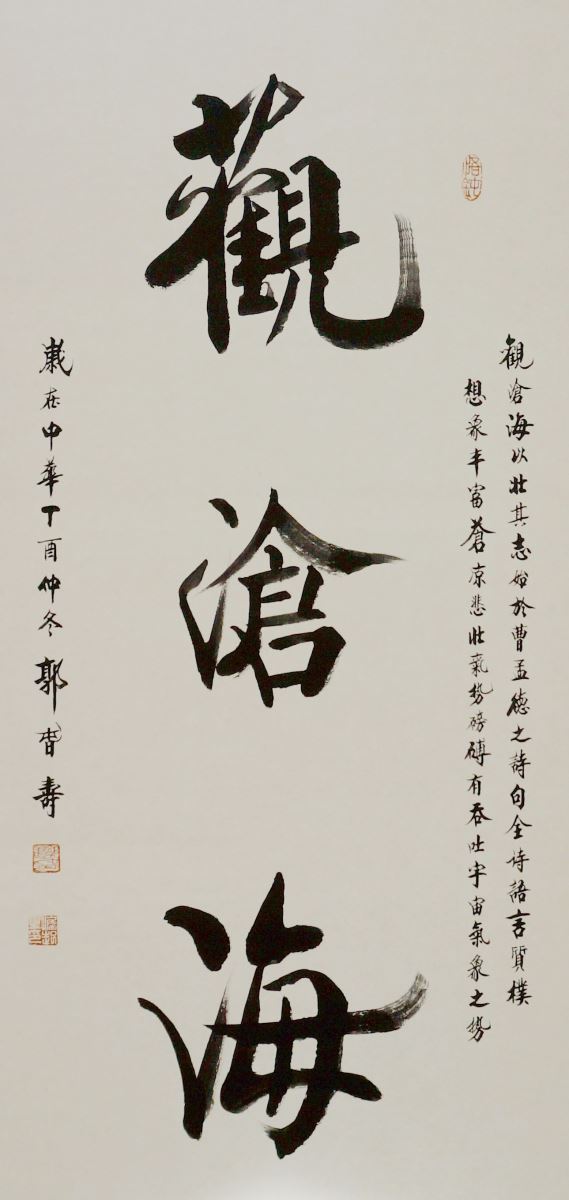 觀滄海以壯其志始於曹孟德之詩句全诗語言質樸
想象丰富蒼凉悲壯氣势磅礴有吞吐宇宙氣象之势
觀滄海
歲在中華丁酉仲冬郭香壽